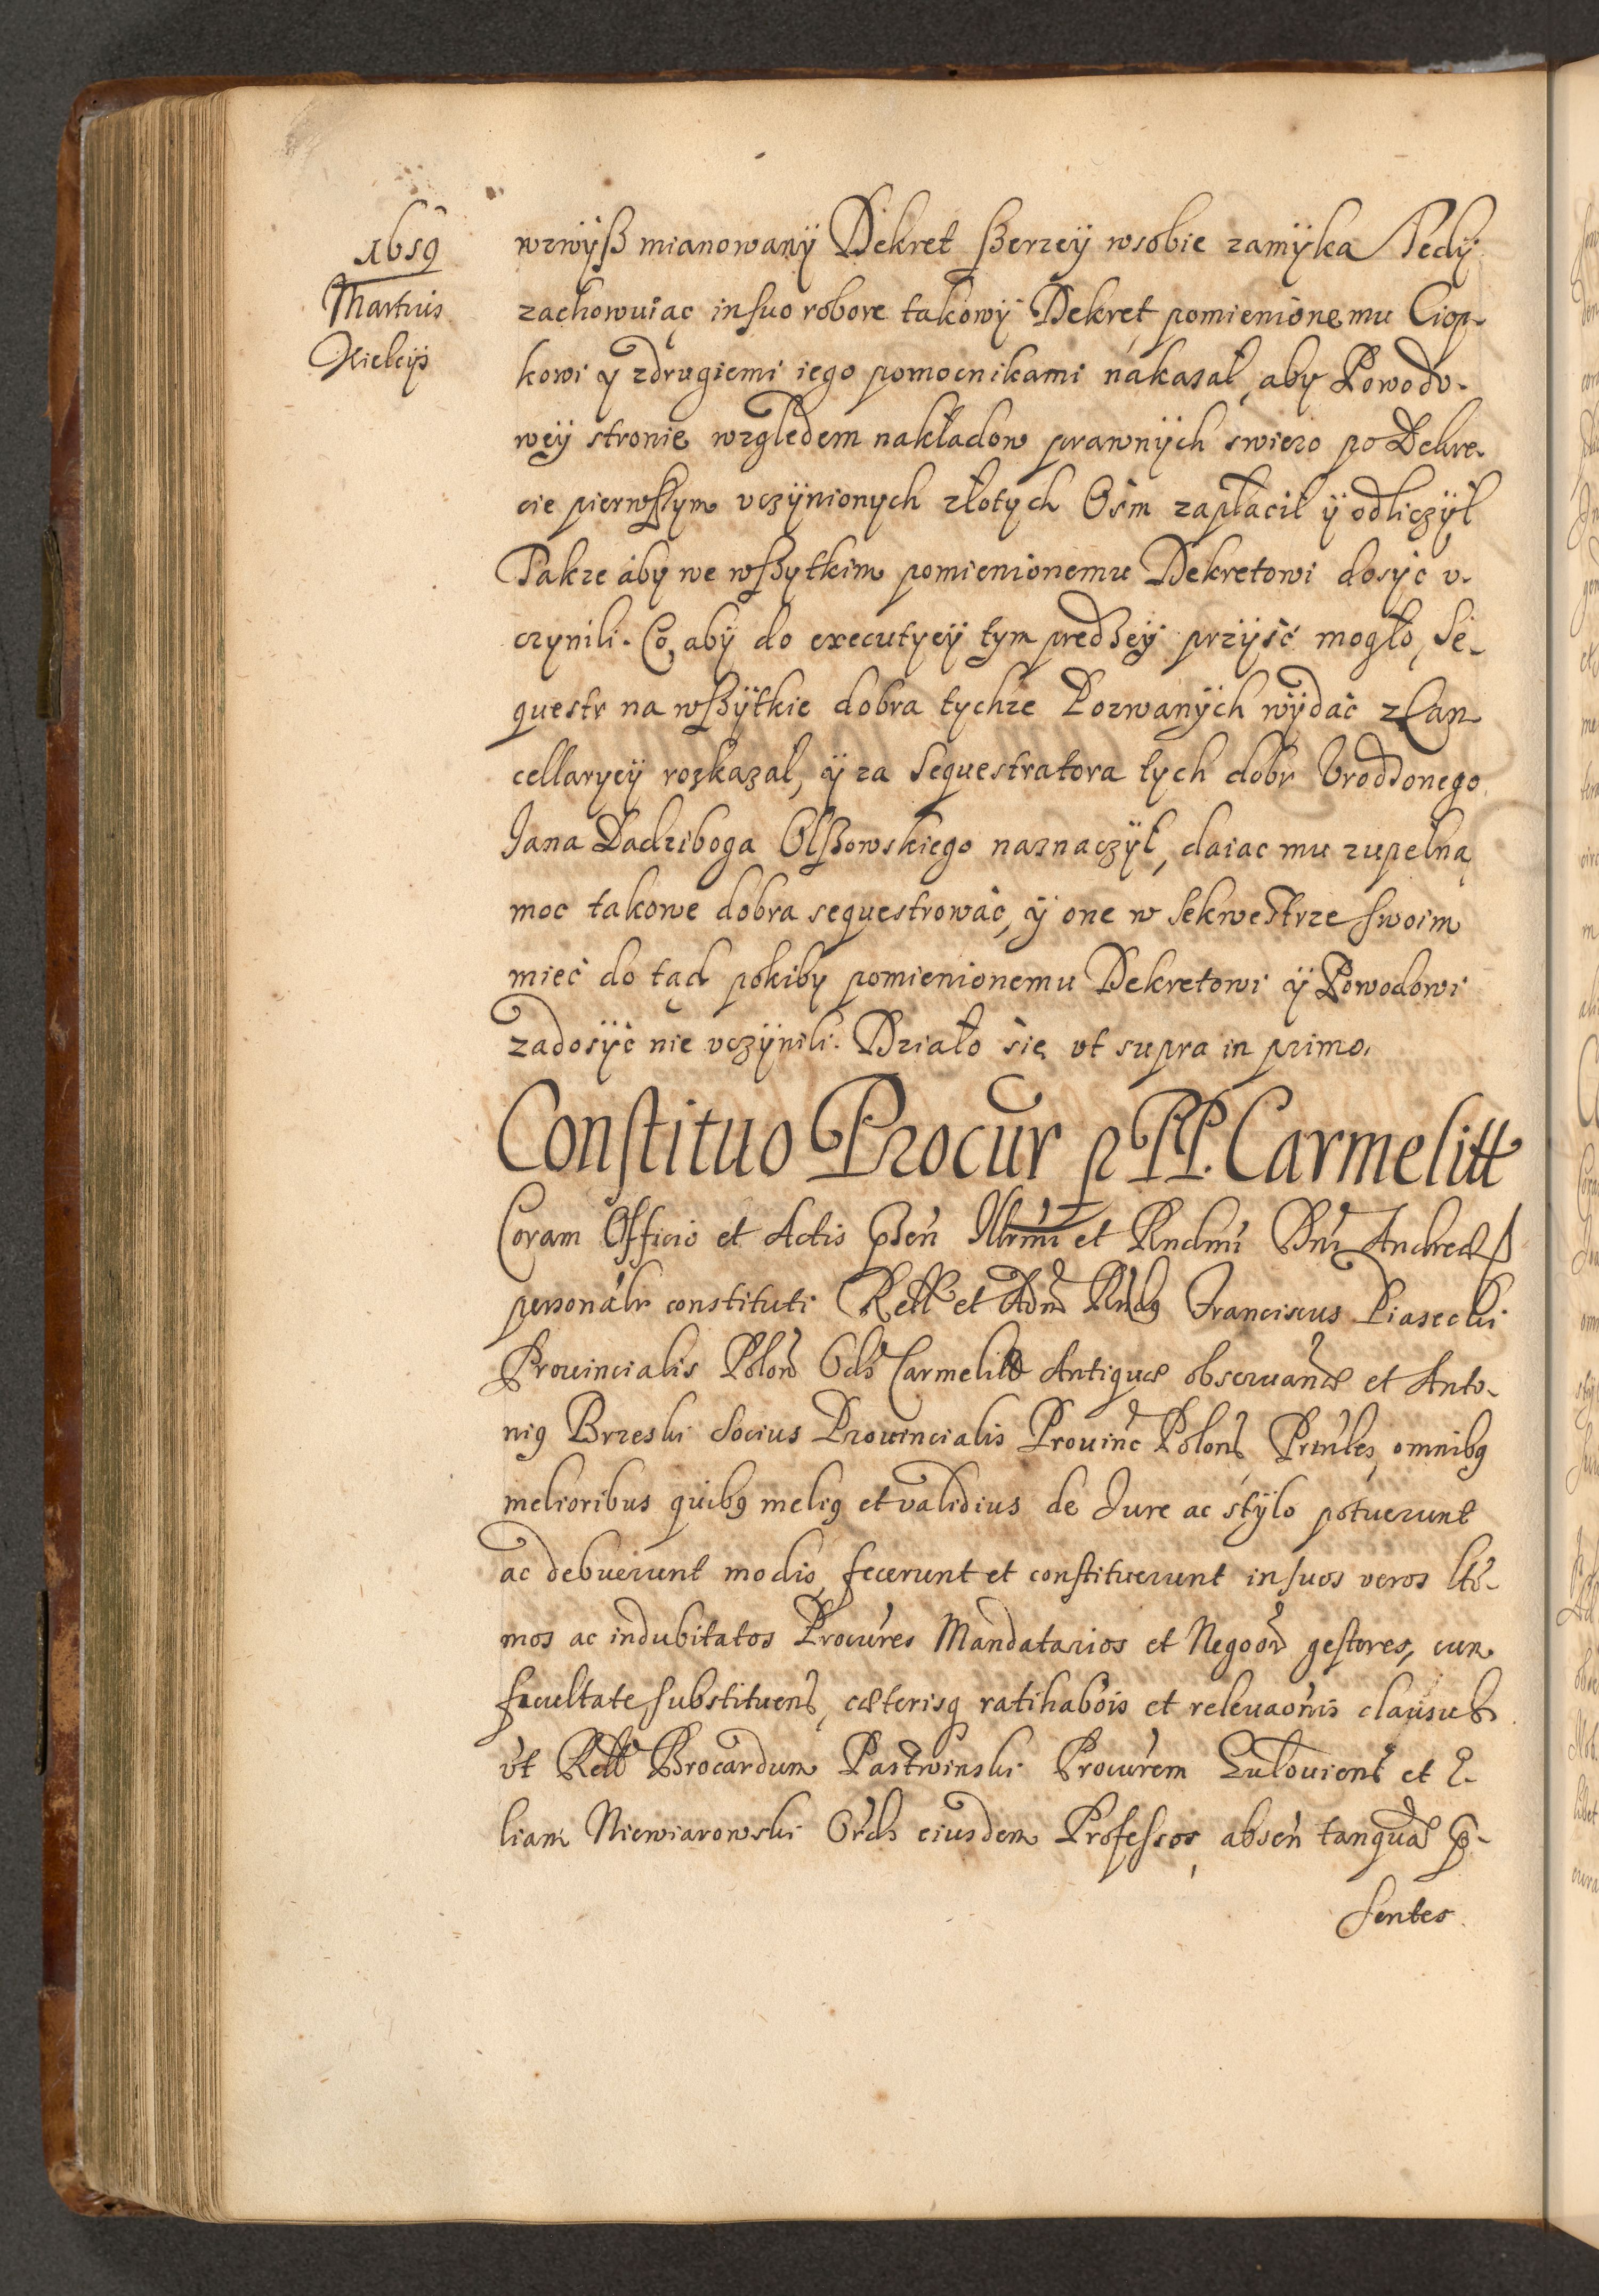 1659
Martius
Kielcijs
wzwÿß mianowanÿ Dekret ßerzeÿ wsobie zamÿka Tedÿ
zachowuiąc in suo robore takowÿ Dekret pomienionemu Ciop-
kowi ÿ zdrugiemi iego pomocnikami nakazał, aby Powodo-
weÿ stronie względem nakładow prawnÿch swiezo po Dekre-
cie pierwszym vczÿnionych złotych Osm zapłacił ÿ odliczÿł
Takze aby we wßytkim pomienionemu Dekretowi dosÿć v-
czynili. Co, abÿ do executyeÿ tym prędzeÿ przÿść mogło, Se-
questr na wßÿtkie dobra tychze Pozwanÿch wÿdać z Can
cellaryeÿ rozkazał, ÿ za Sequestratora tych dobr Vrodzonego
Jana Dadzboga Olßowskiego naznaczÿł, daiac mu zupełną
moc takowe dobra sequestrować, ÿ one w Sekwestrze swoim
mieć do tąd pokiby pomienionemu Dekretowi ÿ Powodowi
zadosÿć nie vczÿnili. Działo się vt supra in primo.
Constituo Procur p PP. Carmelitt
Coram Officio et Actis pnsn Illrmi et Rndmi Dni Andreæ
personalr constituti Rell et Adm Rndq Franciscus Piasecki
Prouincialis Polon Ords Carmelitt Antiquæ obseruanæ et Anto-
niq Brzeski Socius Prouincialis Prouinc Polon Prntes, omnibq
melioribus quibq meliq et validius de Jure ac stÿlo potuerunt
ac debuerunt modis, fecerunt et constituerunt in suos veros ltti-
mos ac indubitatos Procures Mandatarios et Negoor gestores, cum
facultate, substituen, cæterisq ratihabois et releuaonis clausul
vt Rell Brocardum Pastwinski Procurem et E-
liam Niewiarowski Ords eiusdem Professos, absen tanqua p-
sentes